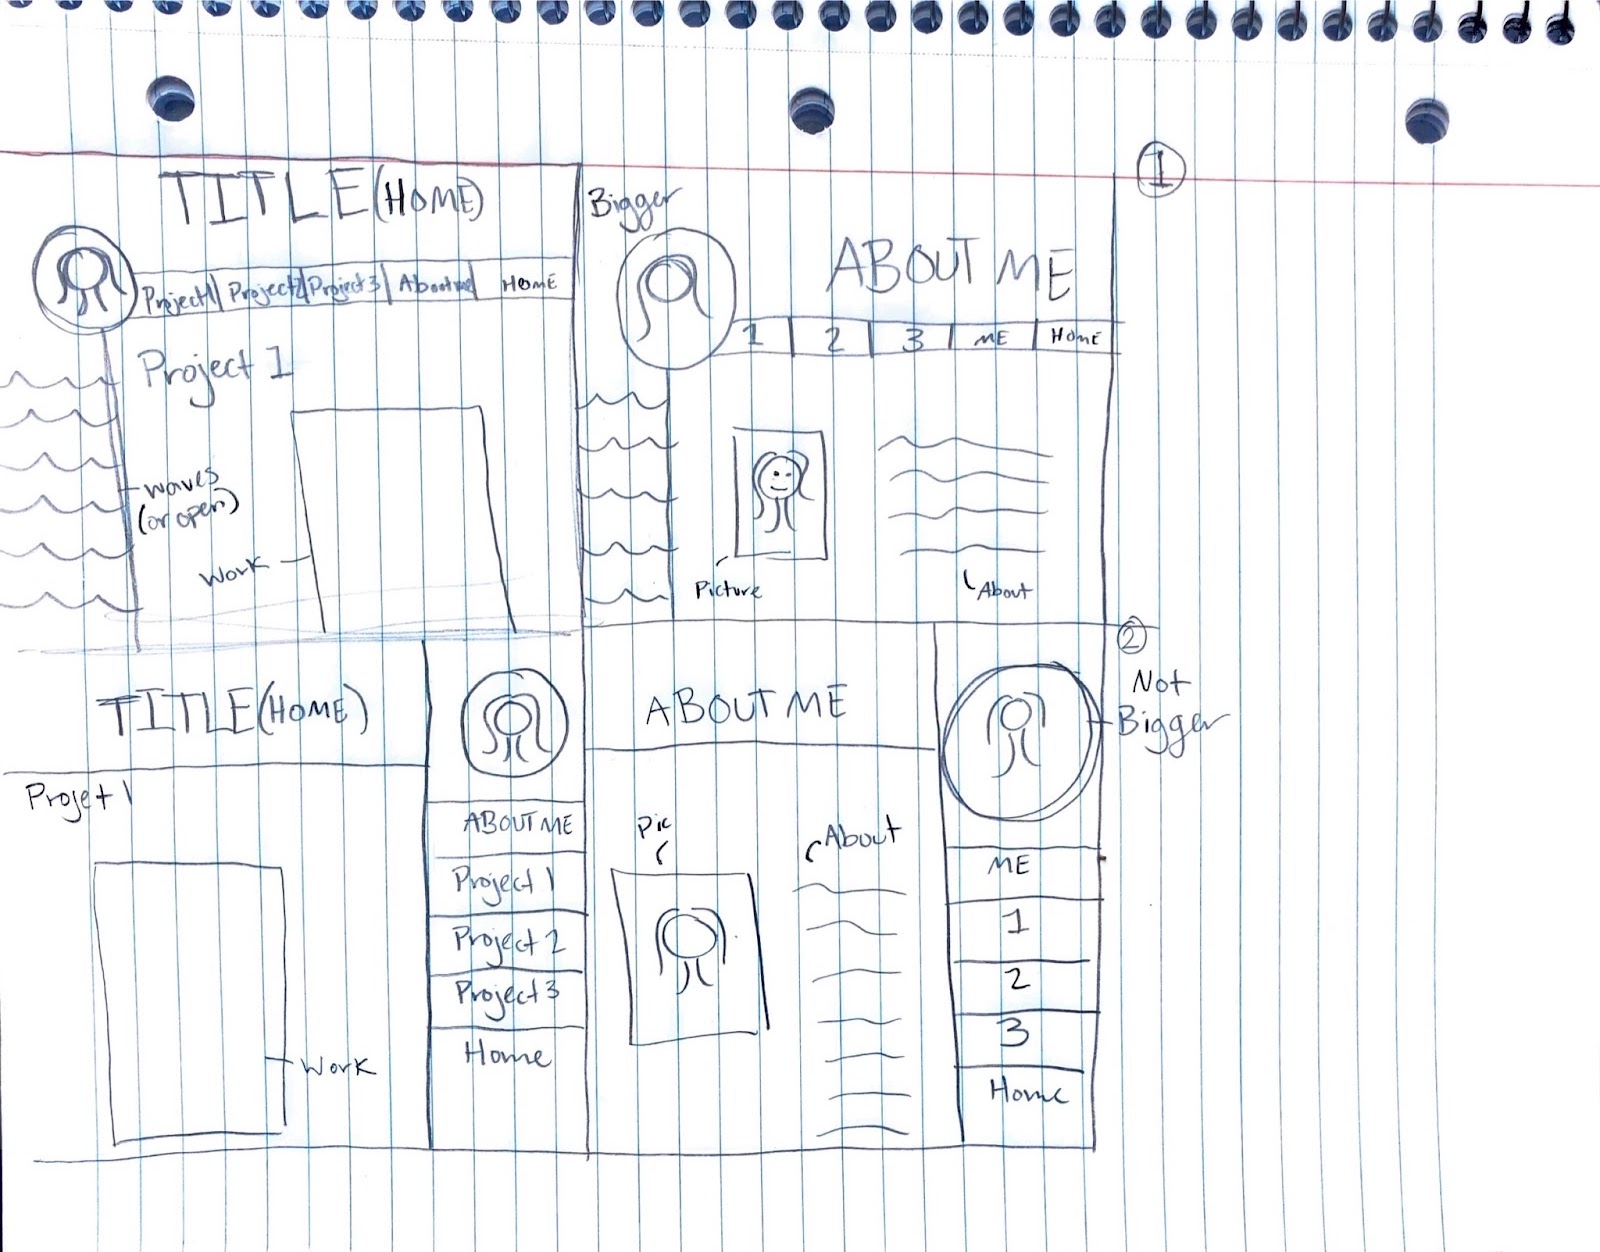 1
TITLE (HOME)
Project 1 Project 2 Project 3 About me HOME
Project 1
waves
(or open)
Work
Bigger
ABOUT ME
1 2 3 ME HOME
Picture
About
2
TITLE (HOME)
Projet 1
Work
ABOUT ME
Project 1
Project 2
Project 3
Home
ABOUT ME
Pic
About
Not
Bigger
ME
1
2
3
Home